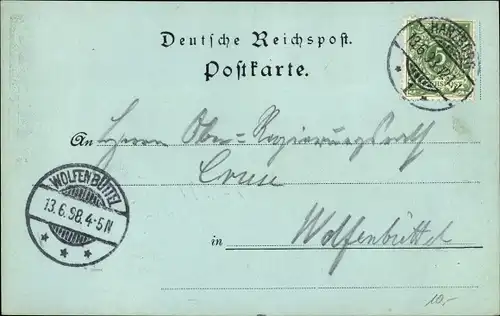 Deutsche Reichspost.
Postkarte.
HARZBURG
5
An Herrn Ober-Regierungsrath
Cruse
in Wolfenbüttel
WOLFENBÜTTEL
13.6.98.4-5N
* * *
10.-